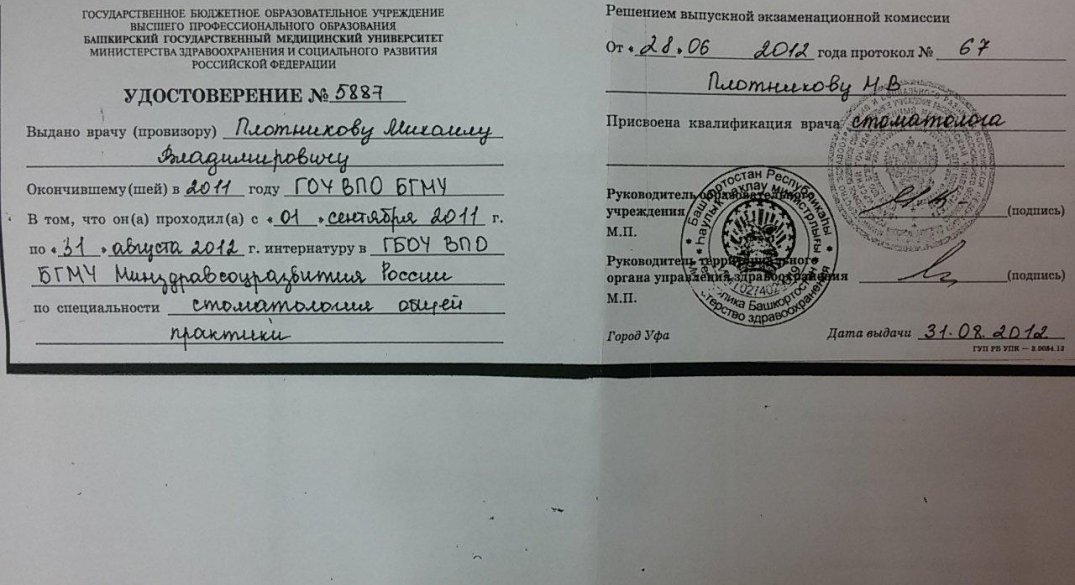 ГОСУДАРСТВЕННОЕ БЮДЖЕТНОЕ ОБРАЗОВАТЕЛЬНОЕ УЧРЕЖДЕНИЕ
ВЫСШЕГО ПРОФЕССИОНАЛЬНОГО ОБРАЗОВАНИЯ
БАШКИРСКИЙ ГОСУДАРСТВЕННЫЙ МЕДИЦИНСКИЙ УНИВЕРСИТЕТ
МИНИСТЕРСТВА ЗДРАВООХРАНЕНИЯ И СОЦИАЛЬНОГО РАЗВИТИЯ
РОССИЙСКОЙ ФЕДЕРАЦИИ
УДОСТОВЕРЕНИЕ № 5887
Выдано врачу (провизору) Плотникову Михаилу
Владимировичу
Окончившему (шей) в 2011 году ГОУ ВПО БГМУ
В том, что он(а) проходил(а) с «01» сентября 2011 г.
по «31» августа 2012 г. интернатуру в ГБОУ ВПО
БГМУ Минздравсоцразвития России
по специальности стоматология общей
практики
Решением выпускной экзаменационной комиссии
От «28» 06 2012 года протокол № 67
Плотникову М.В
Присвоена квалификация врача стоматолога
Руководитель образовательного
учреждения (подпись)
М.П.
Руководитель территориального
органа управления здравоохранения (подпись)
М.П.
Город Уфа Дата выдачи 31.08.2012
ГУП РБ УПК — 2.0084.12
Башкортостан Республикаһы
Һаулыҡ һаҡлау министрлығы